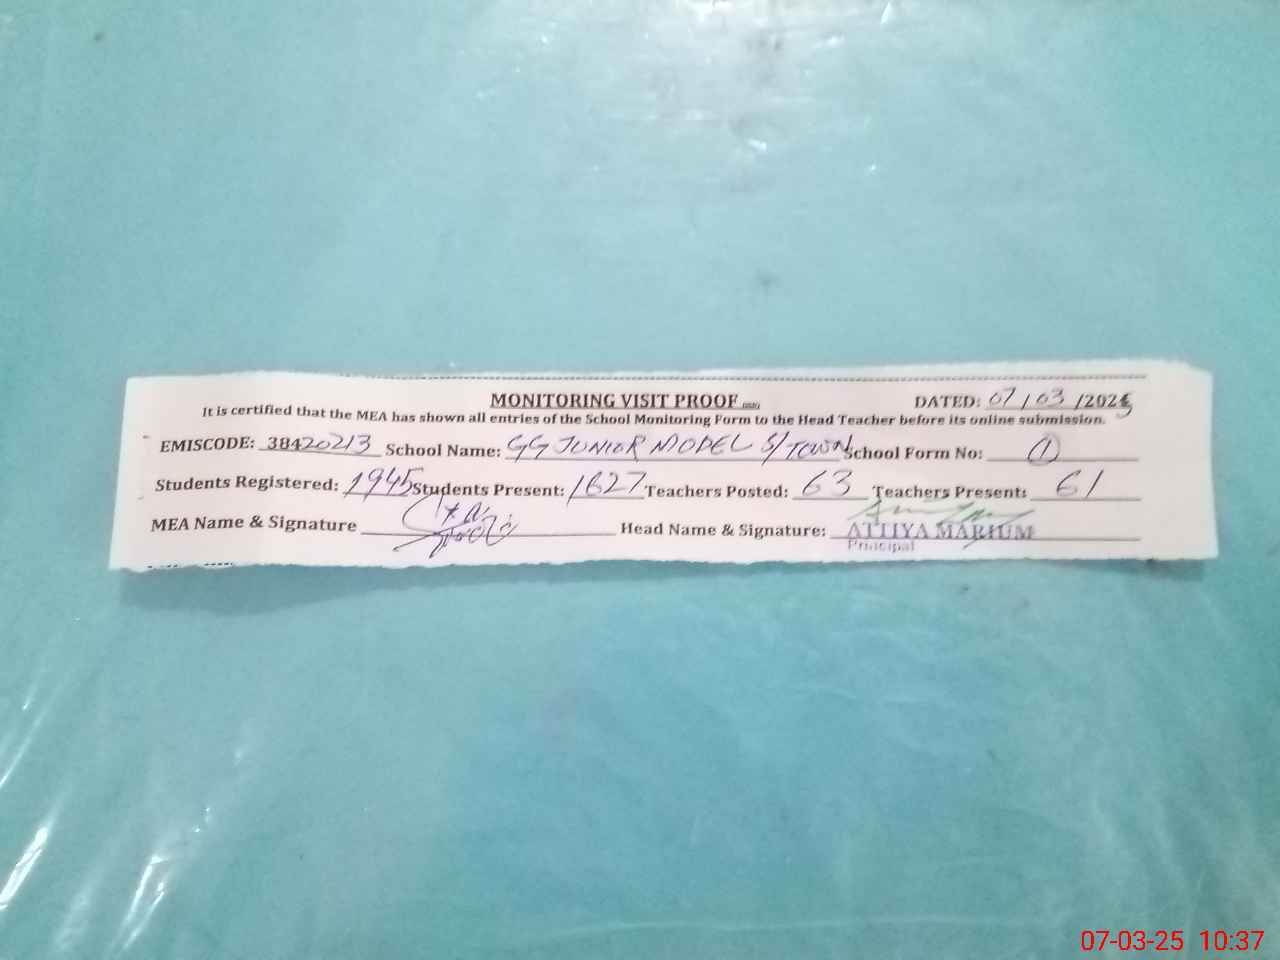 MONITORING VISIT PROOF
DATED: 07/03/2025
It is certified that the MEA has shown all entries of the School Monitoring Form to the Head Teacher before its online submission.
EMISCODE: 38420213 School Name: GG JUNIOR MODEL S/TOWN School Form No: 1
Students Registered: 1945 Students Present: 1627 Teachers Posted: 63 Teachers Present: 61
MEA Name & Signature Head Name & Signature: ATTIYA MARIUM
Principal
07-03-25 10:37